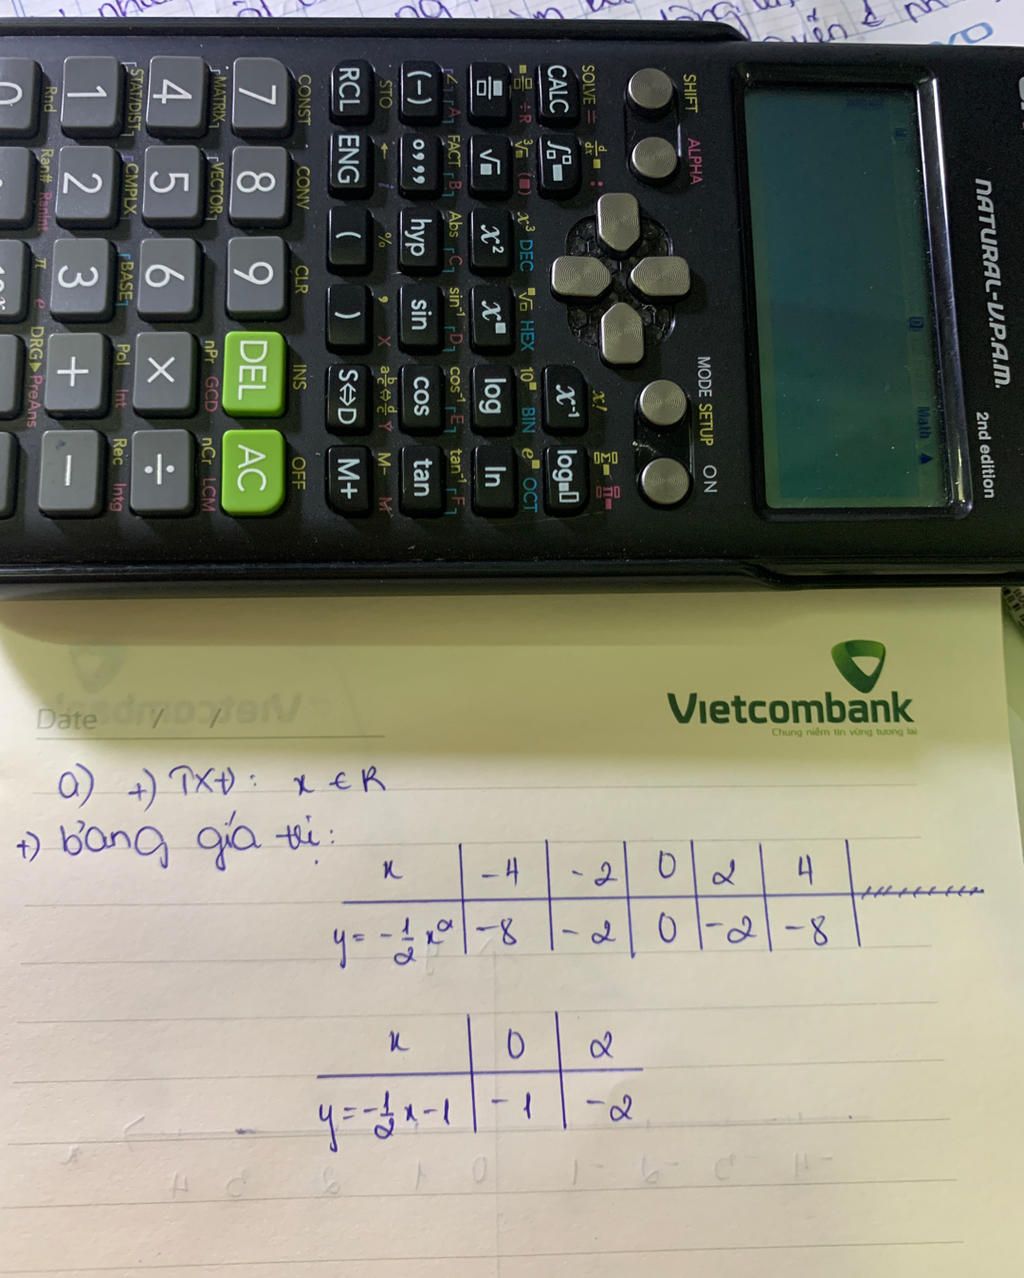 NATURAL-V.P.A.M.
2nd edition
Math
SHIFT ALPHA MODE SETUP ON
SOLVE = d/dx : x! Σ Π
CALC ∫ x⁻¹ log
÷R ³√ x³ DEC √ HEX 10 BIN e OCT
√ x² x log ln
∠ A FACT B Abs C sin⁻¹ D cos⁻¹ E tan⁻¹ F
(−) °,,, hyp sin cos tan
STO ← i % , X a b/c⇔d/c Y M- M
RCL ENG ( ) S⇔D M+
CONST CONV CLR INS OFF
7 8 9 DEL AC
MATRIX VECTOR nPr GCD nCr LCM
4 5 6 × ÷
STAT/DIST CMPLX BASE Pol Int Rec Intg
1 2 3 + −
Rnd Ran# RanInt π e DRG▶ PreAns
0
Vietcombank
Chung niềm tin vững tương lai
Date / /
a) +) TXĐ: x ∈ R
+) bảng giá trị:
x -4 -2 0 2 4
y = -1/2 x² -8 -2 0 -2 -8
x 0 2
y = -1/2 x - 1 -1 -2